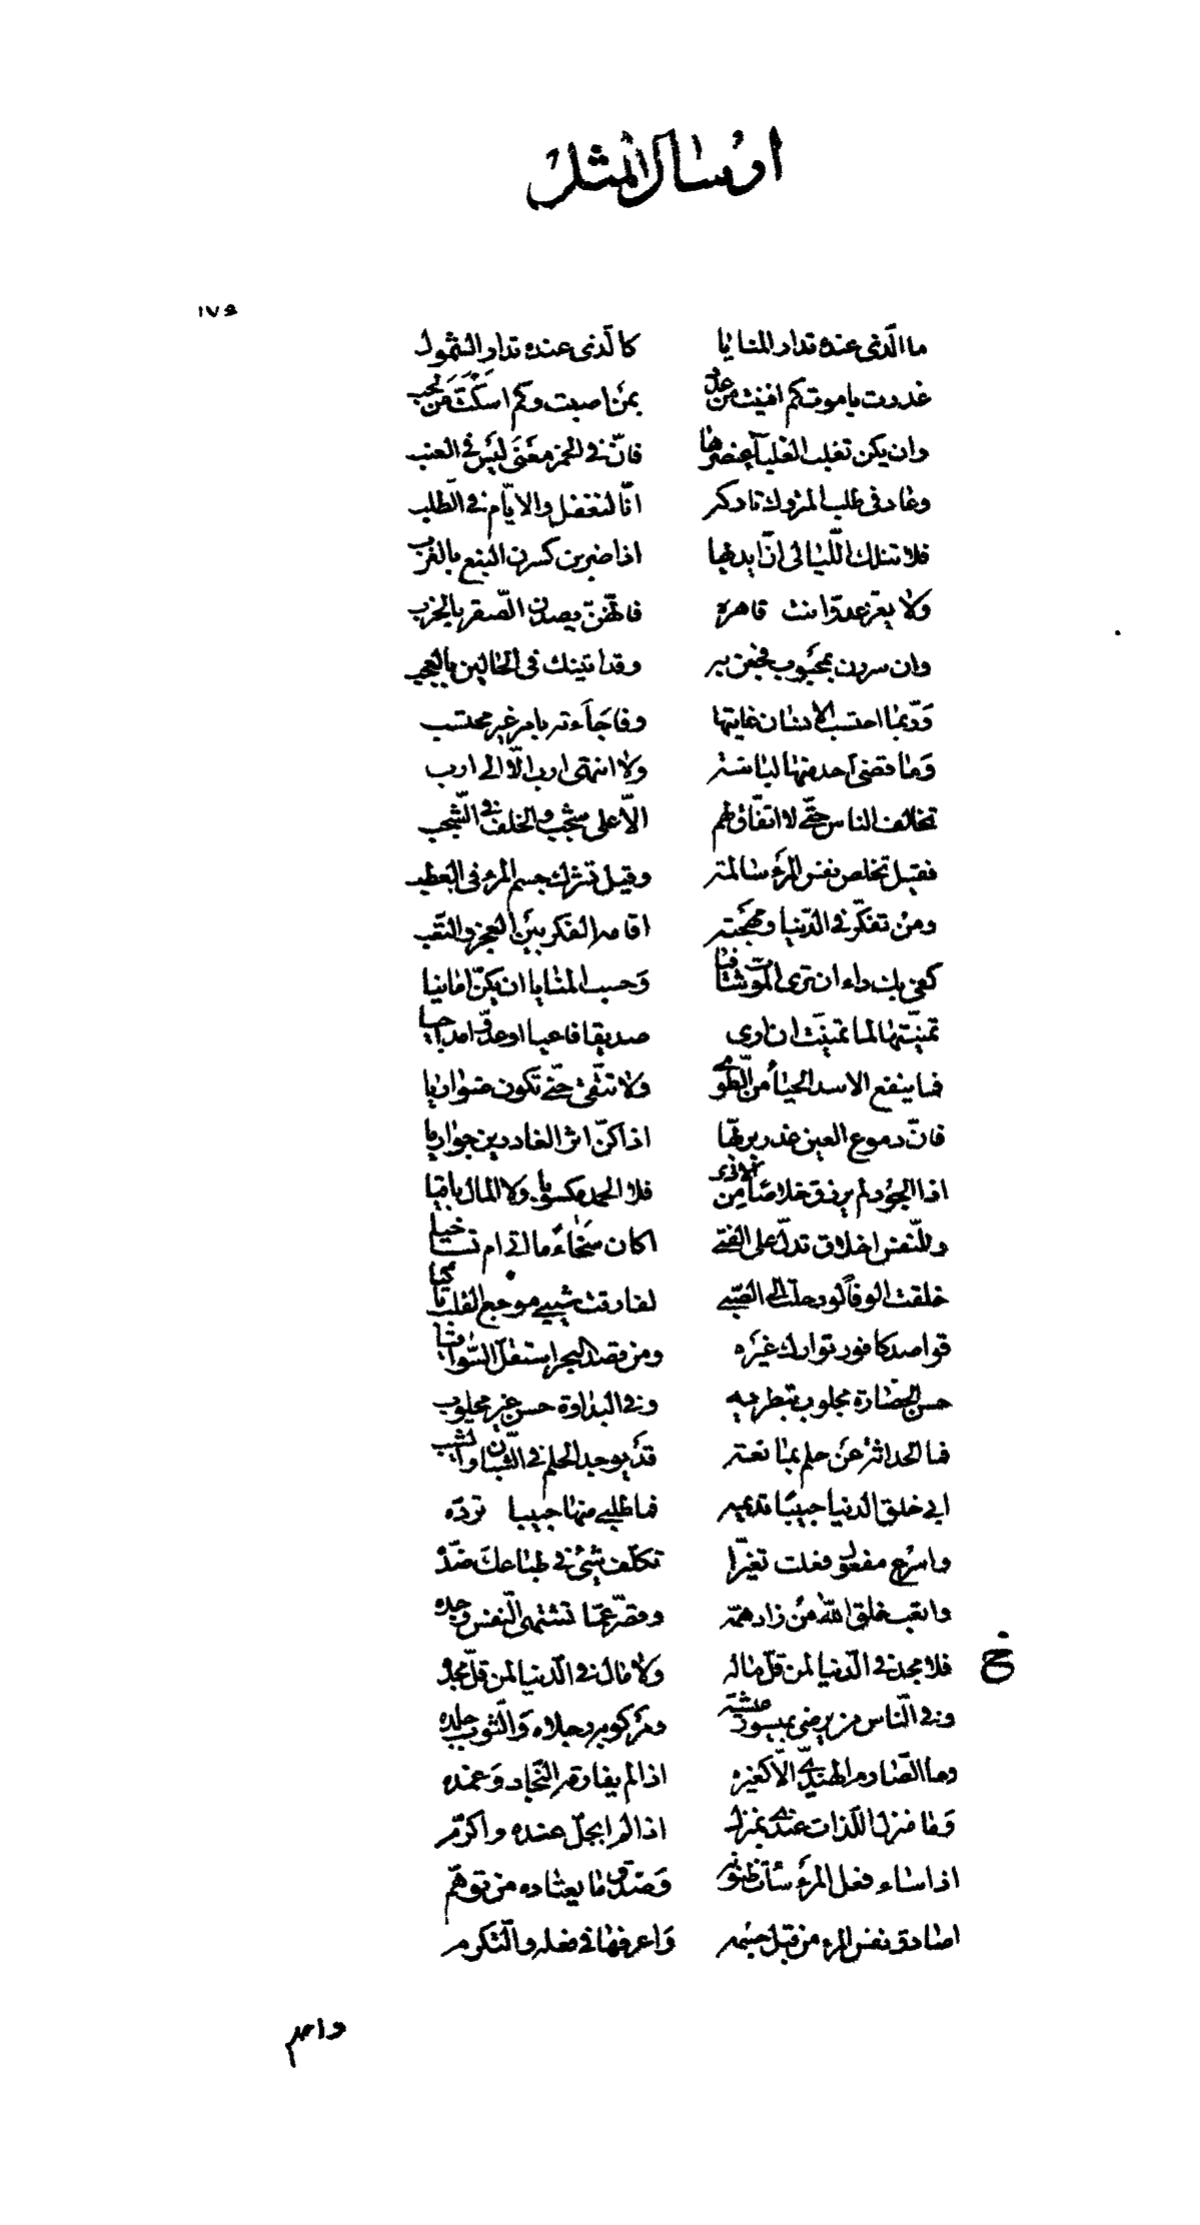 ارسال المثل
١٧٥
ما الّذى عنده تدار المنايا كالّذى عنده تدار الشمول
غدرت يا موت كم افنيت من عدد بمن اصبت وكم اسكتّ من لجب
وان يكن تغلب الغلباء عنصرها فانّ فى الخمر معنى ليس فى العنب
وعاد فى طلب المتروك تاركه انّا لنغفل والايّام فى الطّلب
فلا تنلك اللّيالى انّ ايديها اذا ضربن كسرن النبع بالغرب
ولا يعزّ عدوّا انت قاهره فانّهنّ يصدن الصّقر بالخرب
وان سررن بمحبوب فجعن به وقد اتينك فى الحالين بالعجب
وَربّما احتسب الانسان غايتها وفاجَأته بامر غير محتسب
وَما قضى احد منها لبانته ولا انتهى ارب الّا الى ارب
تخالف الناس حتّى لا اتّفاق لهم الّا على شجب والخلف فى الشّجب
فقيل تخلص نفس المرء سالمة وقيل تشرك جسم المرء فى العطب
ومن تفكّر فى الدّنيا ومهجته اقامه الفكر بين العجز والتّعب
كفى بك داء ان ترى الموت شافيا وَحسب المنايا ان يكنّ امانيا
تمنّيتها لما تمنّيت ان ارى صديقا فاعيا او عدوّا مداجيا
فما ينفع الاسد الحياء من الطّوى ولا تتّقى حتّى تكون ضواريا
فانّ دموع العين غدر بربّها اذا كنّ اثر الغادرين جواريا
اذا الجود لم يرزق خلاصا من الاذى فلا الحمد مكسوبا ولا المال باقيا
وللنّفس اخلاق تدلّ على الفتى اكان سخاءً ما اتى ام تساخيا
خلقت الوفا لو رحلت الى الصّبى لفارقت شيبى موجع القلب باكيا
قواصد كافور توارك غيره ومن قصد البحر استقلّ السّواقيا
حسن الحضارة مجلوب بتطرية وفى البداوة حسن غير مجلوب
فما الحداثة عن حلم بمانعة قد يوجد الحلم فى الشّبان والشّيب
ابى خلق الدنيا حبيبًا تديمه فما طلبى منها حبيبا تردّه
واسرع مفعول فعلت تغيّرا تكلّف شئ فى طباعك ضدّه
واتعب خلق اللّه من زاد همّه وقصّر عمّا تشتهى النّفس وجده
خ
فلا مجد فى الدّنيا لمن قلّ ماله ولا مال فى الدّنيا لمن قلّ مجده
وفى النّاس من يرضى بميسور عيشة ومركوبه رجلاه وَالثّوب جلده
وما الصّارم الهندىّ الّا كغيره اذا لم يفارقه النّجاد وغمده
وَما منزل اللّذات عندى بمنزل اذا لم ابجّل عنده واكرّم
اذا ساء فعل المرء سأت ظنونه وَصدّق ما يعتاده من توهّم
اصادق نفس المرء من قبل جسمه وَاعرفها فى فعله والتّكرم
واحلم